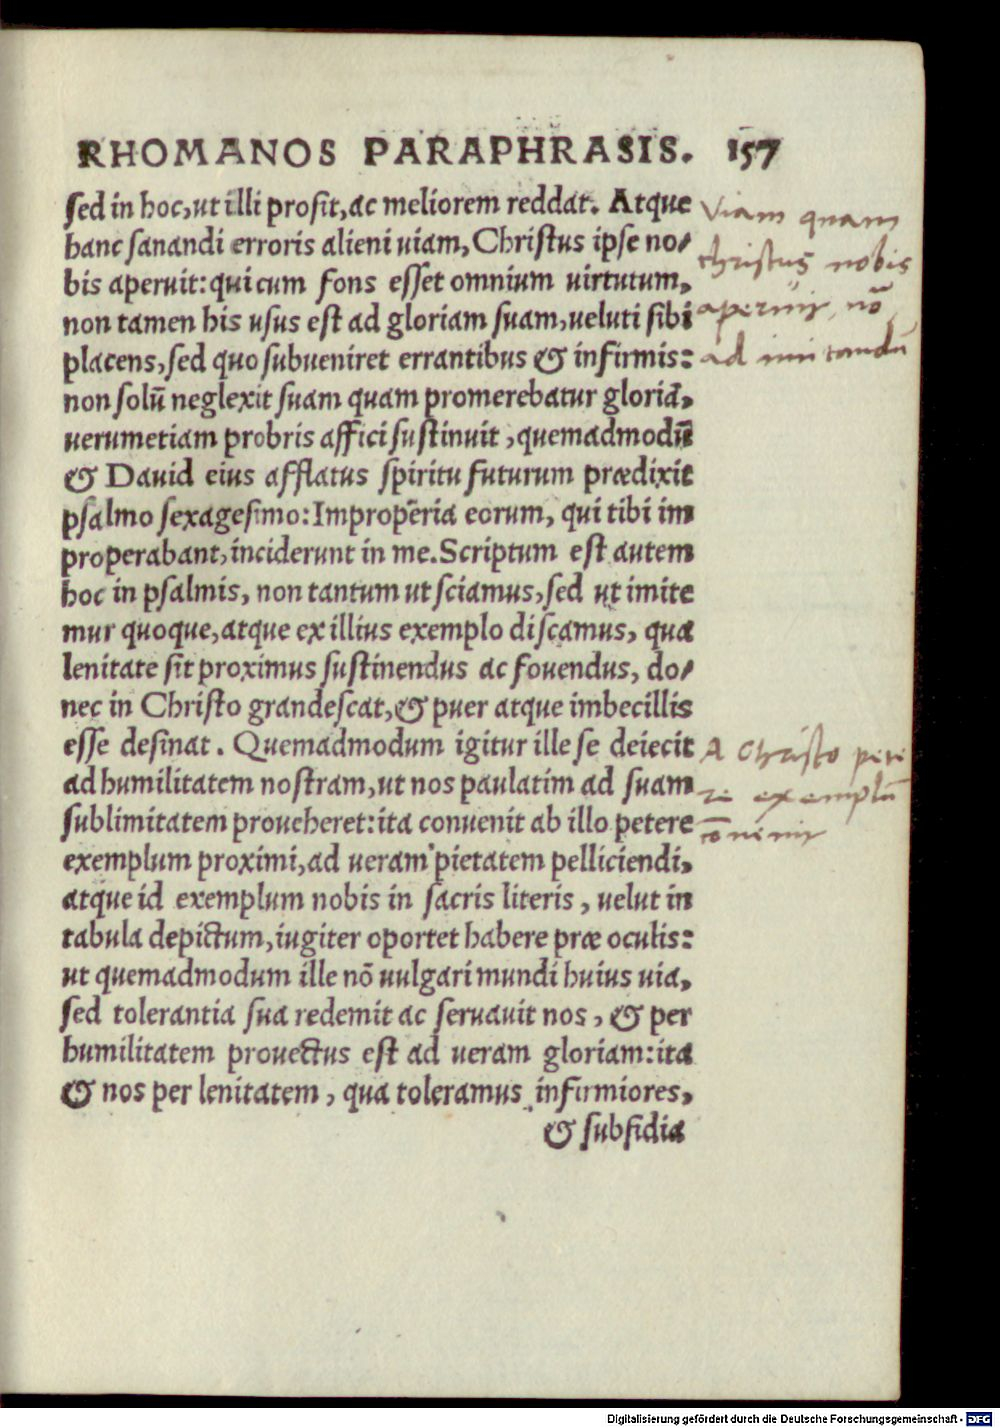 RHOMANOS PARAPHRASIS. 157
sed in hoc, ut illi prosit, ac meliorem reddat. Atque
hanc sanandi erroris alieni uiam, Christus ipse no/
bis aperuit: qui cum fons esset omnium uirtutum,
non tamen his usus est ad gloriam suam, ueluti sibi
placens, sed quo subueniret errantibus & infirmis:
non solū neglexit suam quam promerebatur gloriā,
uerumetiam probris affici sustinuit, quemadmodū
& Dauid eius afflatus spiritu futurum prædixit
psalmo sexagesimo: Improperia eorum, qui tibi im
properabant, inciderunt in me. Scriptum est autem
hoc in psalmis, non tantum ut sciamus, sed ut imite
mur quoque, atque ex illius exemplo discamus, qua
lenitate sit proximus sustinendus ac fouendus, do/
nec in Christo grandescat, & puer atque imbecillis
esse desinat. Quemadmodum igitur ille se deiecit
ad humilitatem nostram, ut nos paulatim ad suam
sublimitatem proueheret: ita conuenit ab illo petere
exemplum proximi, ad ueram pietatem pelliciendi,
atque id exemplum nobis in sacris literis, uelut in
tabula depictum, iugiter oportet habere præ oculis:
ut quemadmodum ille nō uulgari mundi huius uia,
sed tolerantia sua redemit ac seruauit nos, & per
humilitatem prouectus est ad ueram gloriam: ita
& nos per lenitatem, qua toleramus infirmiores,
& subsidia
Viam quam
christus nobis
aperuit, nō
ad imitandū
A Christo pete
re exemplū
cōuenit
Digitalisierung gefördert durch die Deutsche Forschungsgemeinschaft - DFG